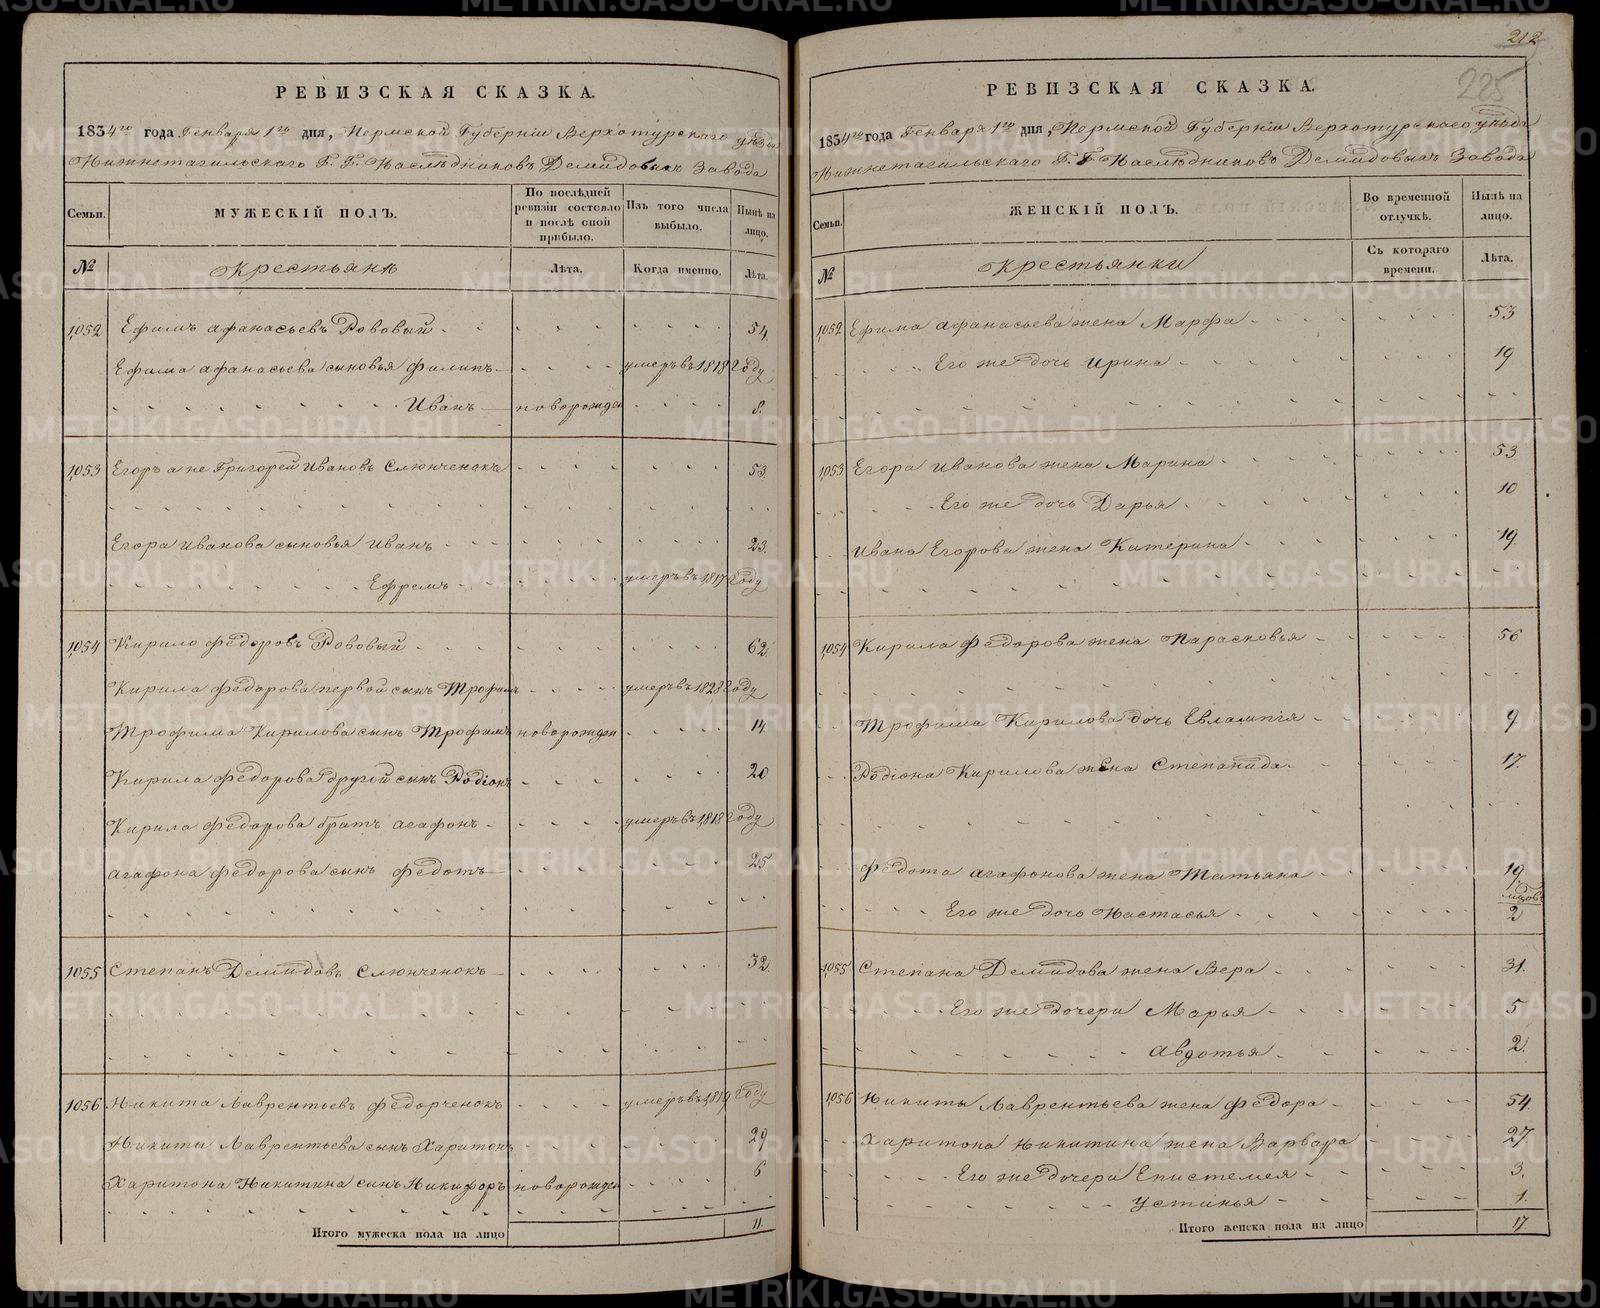 РЕВИЗСКАЯ СКАЗКА.
1834го года Генваря 1го дня, Пермской Губернiи Верхотурскаго уѣзда
Нижнетагильскаго Г. Г. Наслѣдниковъ Демидовыхъ Завода
Семьи.
МУЖЕСКIЙ ПОЛЪ.
По послѣдней ревизiи состояло и послѣ оной прибыло.
Изъ того числа выбыло.
Нынѣ на лицо.
№
Крестьянѣ
Лѣта.
Когда именно.
Лѣта.
1052 Ефимъ Афанасьевъ Рововый 54
Ефима Афанасьева сыновья Филипъ умеръ въ 1818 году
Иванъ новорожден 8.
1053 Егоръ а не Григорей Ивановъ Слюнченокъ 53
Егора Иванова сыновья Иванъ 23.
Ефремъ умеръ въ 1817 году
1054 Кирило Федоровъ Рововый 62
Кирила Федорова первой сынъ Трофимъ умеръ въ 1828 году
Трофима Кирилова сынъ Трофимъ новорожден 14
Кирила Федорова другой сынъ Родiонъ 20
Кирила Федорова братъ Агафонъ умеръ въ 1818 году
Агафона Федорова сынъ Федотъ 25
1055 Степанъ Демидовъ Слюнченокъ 32
1056 Никита Лаврентьевъ Федорченокъ умеръ въ 1819 году
Никиты Лаврентьева сынъ Харитонъ 29
Харитона Никитина сынъ Никифоръ новорожден 6
Итого мужеска пола на лицо 11.
212
225
РЕВИЗСКАЯ СКАЗКА.
1834го года Генваря 1го дня, Пермской Губернiи Верхотурскаго уѣзда
Нижнетагильскаго Г. Г. Наслѣдниковъ Демидовыхъ Завода
Семьи.
ЖЕНСКIЙ ПОЛЪ.
Во временной отлучкѣ.
Нынѣ на лицо.
№
Крестьянки
Съ котораго времени.
Лѣта.
1052 Ефима Афанасьева жена Марфа 53
Его же дочь Ирина 19
1053 Егора Иванова жена Марина 53
Его же дочь Дарья 10
Ивана Егорова жена Катерина 19
1054 Кирила Федорова жена Парасковья 56
Трофима Кирилова дочь Евлампiя 9
Родiона Кирилова жена Степанида 17.
Федота Агафонова жена Татьяна 19
Его же дочь Настасья 2
1055 Степана Демидова жена Вера 31.
Его же дочери Марья 5
Авдотья 2.
1056 Никиты Лаврентьева жена Федора 54
Харитона Никитина жена Варвара 27
Его же дочери Епистемея 3.
Устинья 1.
Итого женска пола на лицо 17
METRIKI.GASO-URAL.RU